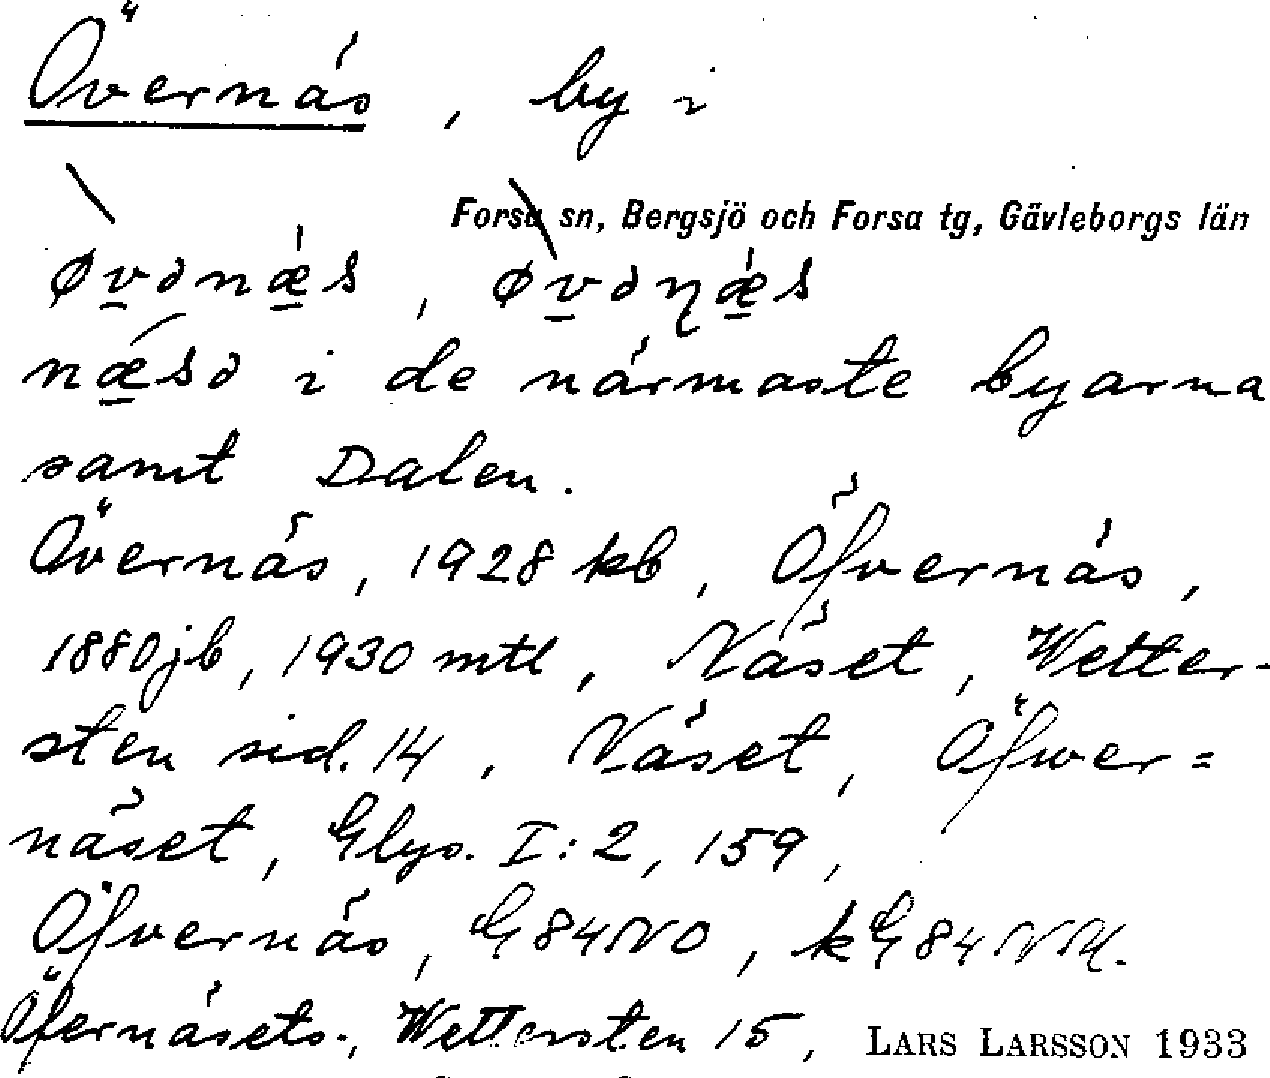 Övernäs, by i
Forsa sn, Bergsjö och Forsa tg, Gävleborgs län
øvǝnæs, øvǝnæs
næsǝ i de närmaste byarna
samt Dalen.
Övernäs, 1928 kb, Öfvernäs,
1880 jb, 1930 mtl, Näset, Wetter-
sten sid. 14, Näset, Öfwer=
näset, Glys. I:2, 159,
Öfvernäs, G84NO, kG84
Öfernäsets., Wettersten 15, LARS LARSSON 1933